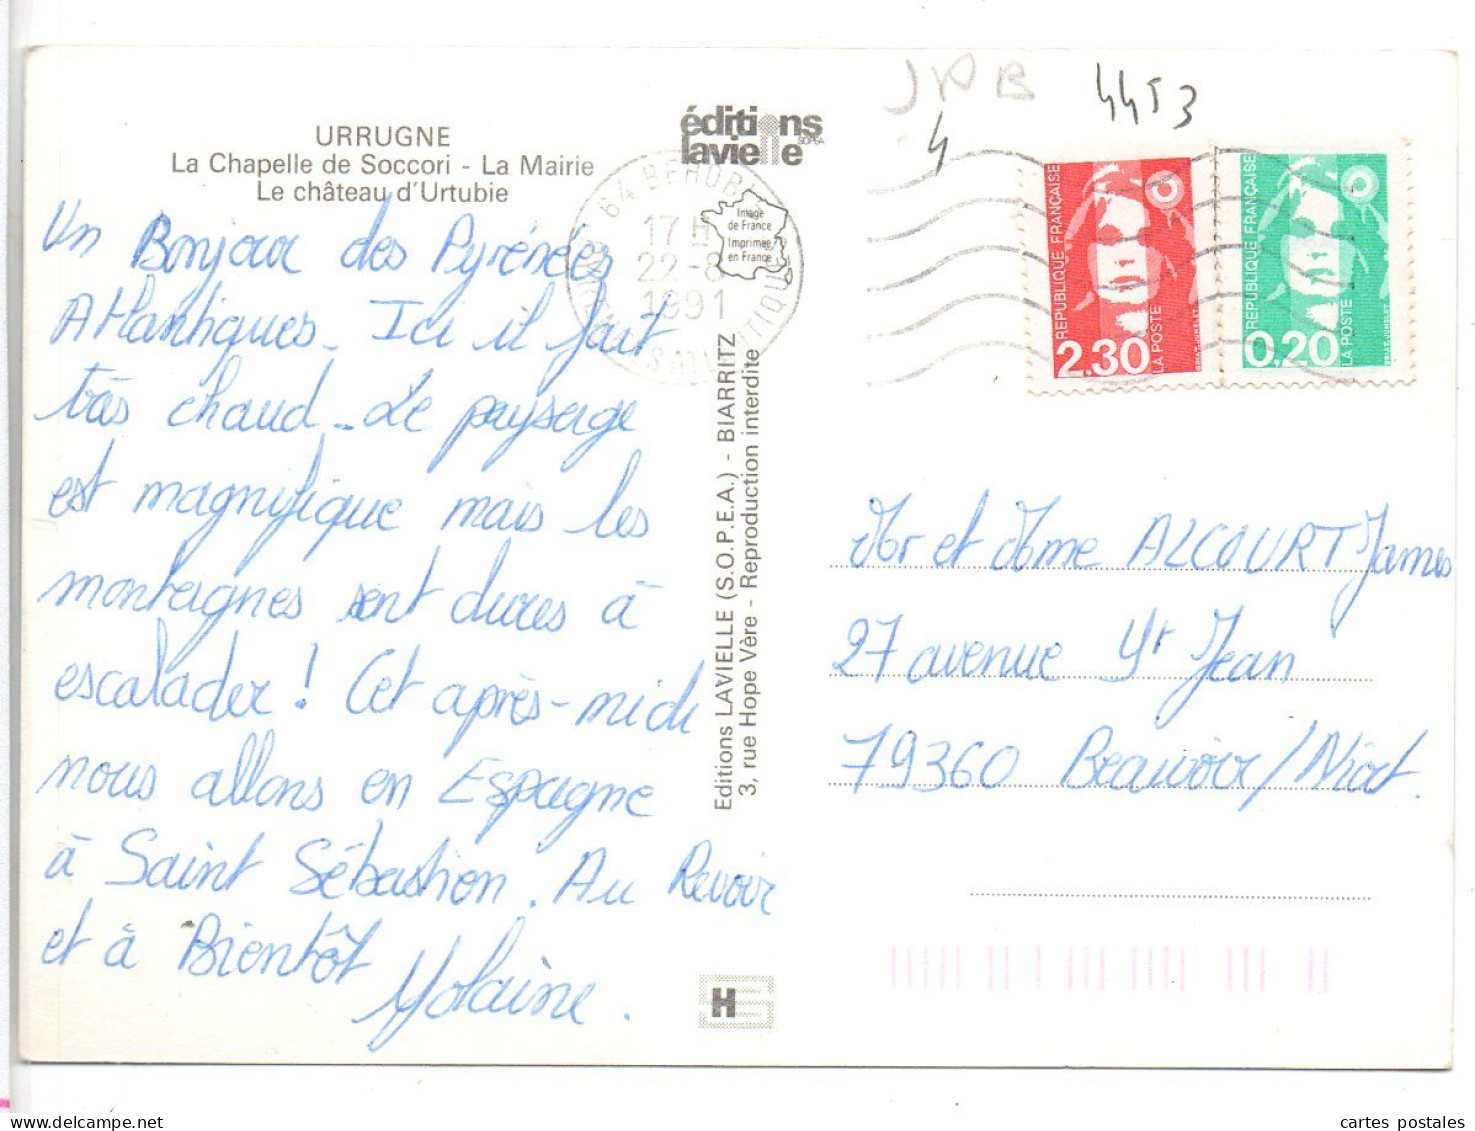 URRUGNE
La Chapelle de Soccori - La Mairie
Le château d'Urtubie
éditions
lavielle
SOPEA
JPB
4
4453
64 BEHOBIE
17 H
22-8
1991
ATLANTIQUES
Image
de France
Imprimée
en France
REPUBLIQUE FRANÇAISE
2,30
LA POSTE
REPUBLIQUE FRANÇAISE
0,20
LA POSTE
Un Bonjour des Pyrénées
Atlantiques. Ici il fait
très chaud. Le paysage
est magnifique mais les
montagnes sont dures à
escalader ! Cet après-midi
nous allons en Espagne
à Saint Sébastien. Au Revoir
et à Bientôt
Yolaine.
Editions LAVIELLE (S.O.P.E.A.) - BIARRITZ
3, rue Hope Vère - Reproduction interdite
H
Mr et Mme ALCOURT James
27 avenue St Jean
79360 Beauvoir/Niort.
cartes postales